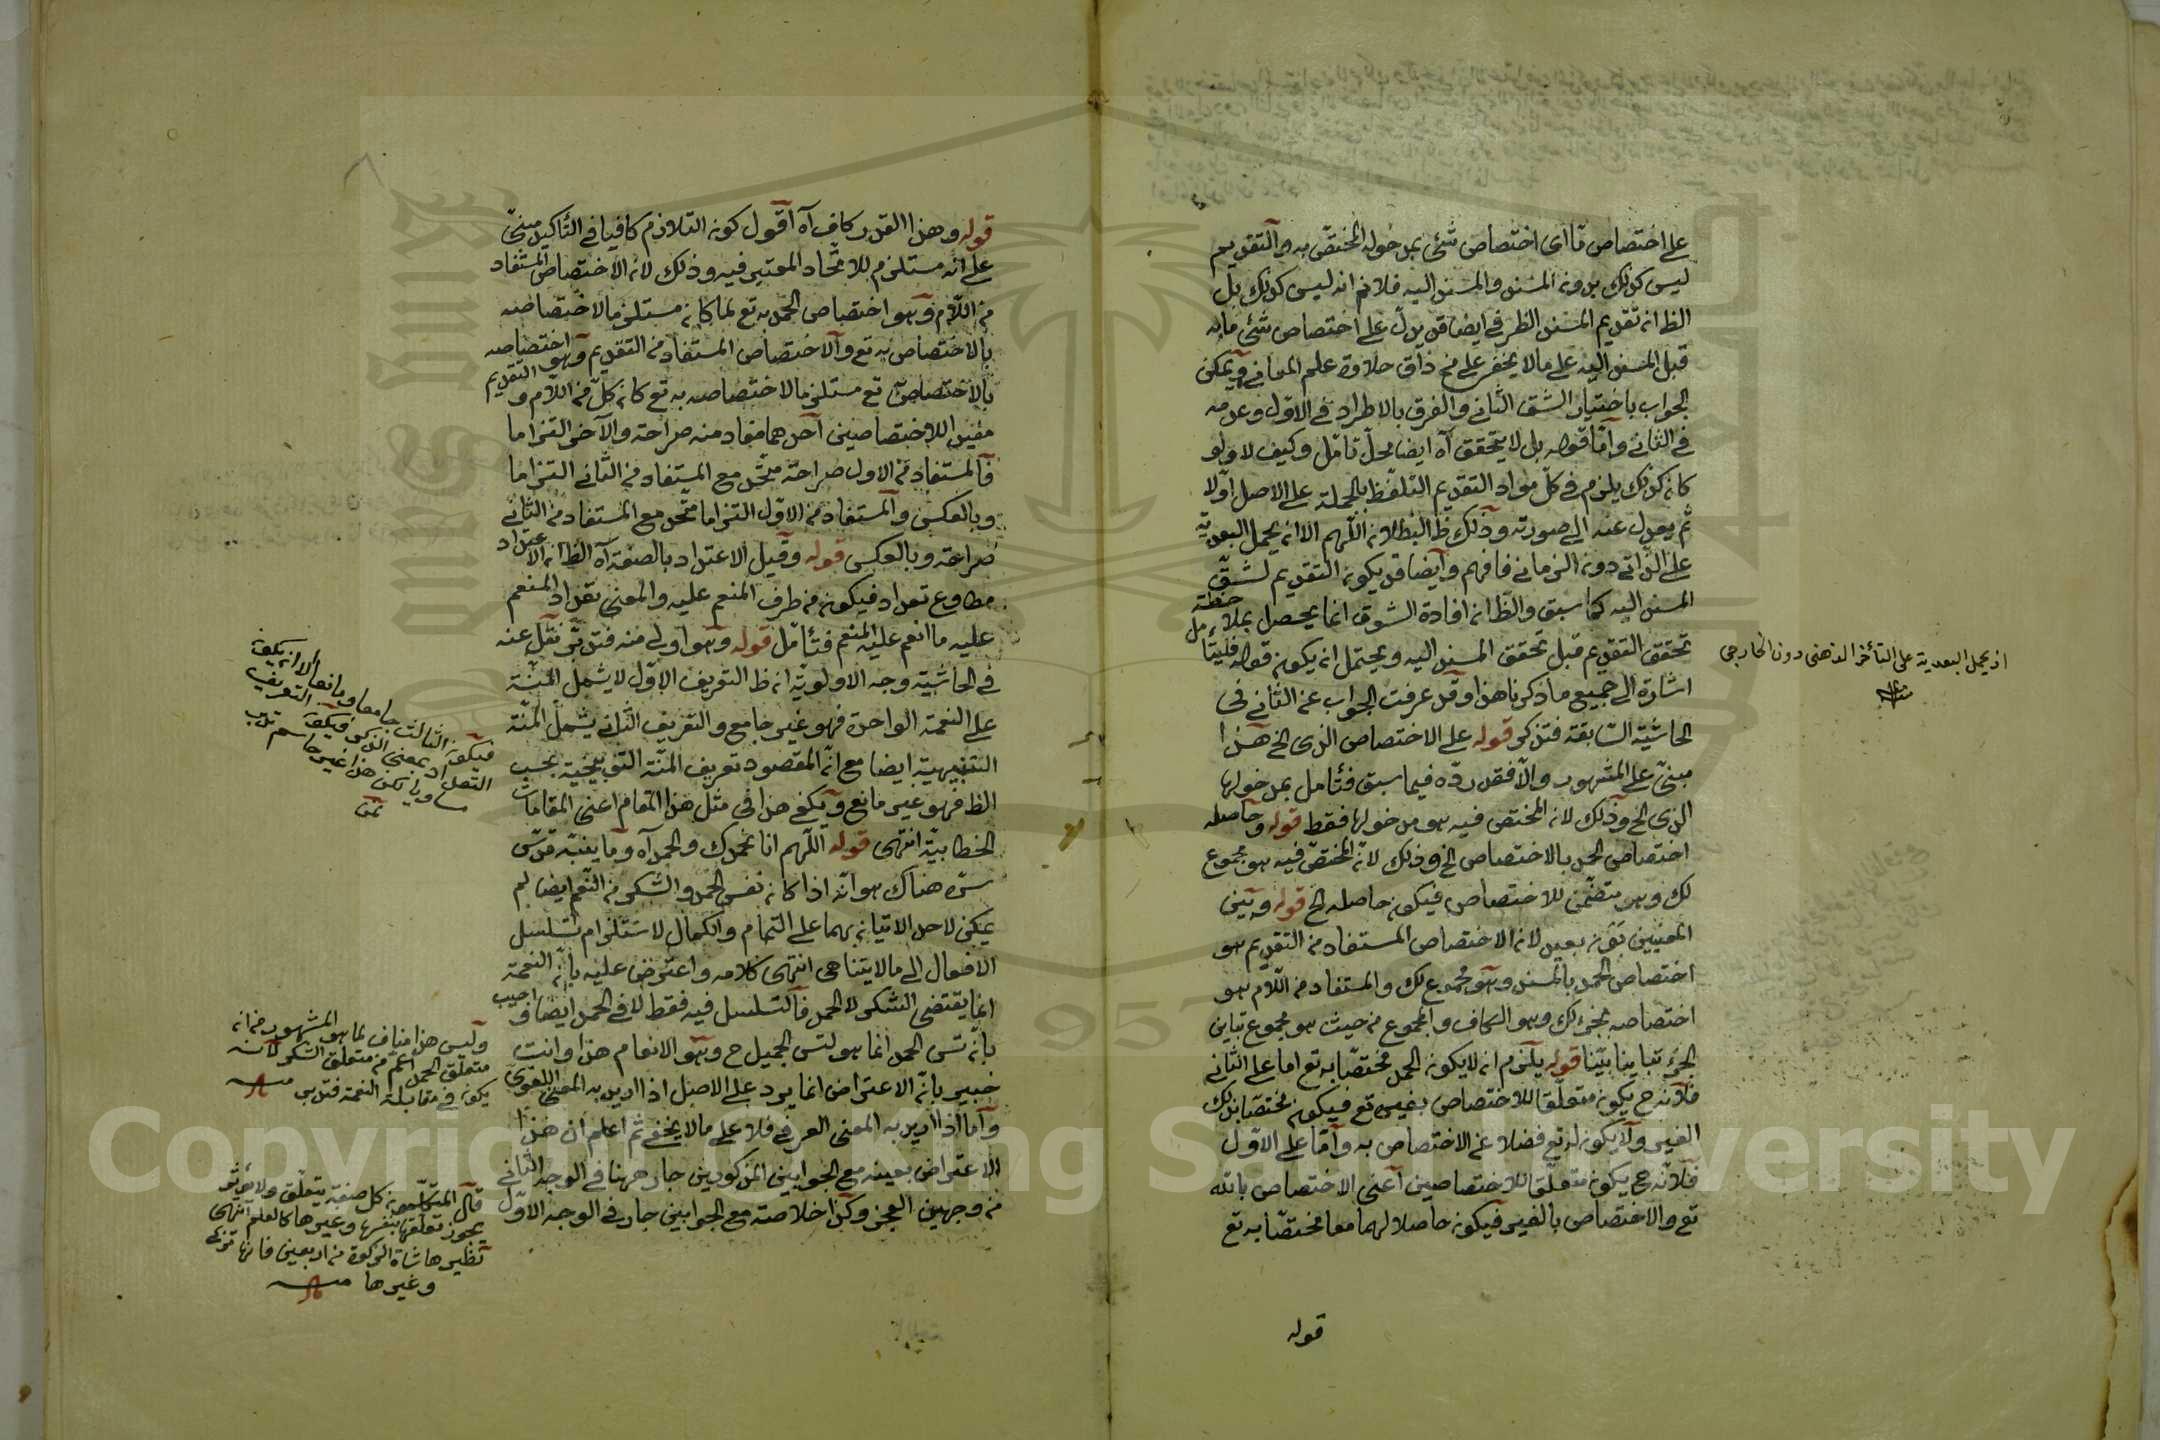 على اختصاص ما اى اختصاص شئ بمدخوله المختص به والتقديم
ليس كذلك بدون المسند والمسند اليه فلانم انه ليس كذلك بل
الظ ان تقديم المسند الظرفى ايضا قد يدل على اختصاص شئ ما به
قبل المسند اليه على ما لا يخفى على من ذاق حلاوة علم المعانى ويمكن
الجواب باختيار الشق الثانى والفرق بالاطراد فى الاول وعدمه
فى الثانى وامّا قوله بل لا يتحقق آه ايضا محل تأمل وكيف لا ولو
كان كذلك يلزم فى كل مواد التقديم التلفظ بالجملة على الاصل اولا
ثم يعدل عنه الى صورته وذلك ظ البطلان اللهم الا ان يحمل البعدية
على الذاتى دون الزمانى فافهم وايضا قد يكون التقديم لشق
المسند اليه كما سبق والظ ان افادة الشوق انما يحصل بملاحظة
تحقق التقديم قبل تحقق المسند اليه ويحتمل ان يكون قوله فليتأمل
اشارة الى جميع ما ذكرنا هذا وقد عرفت الجواب عن الثانى فى
الحاشية السابقة فتذكر قوله على الاختصاص الذى الخ هذا
مبنى على المشهور والا فقد ردّه فيما سبق فتأمل بمدخولها
الذى الخ وذلك لان المختص فيه هو مدخولها فقط قوله وحاصله
اختصاص الحمد بالاختصاص الخ وذلك لان المختص فيه هو مجموع
لك وهو متضمن للاختصاص فيكون حاصله الخ قوله وبين
المعنيين بون بعيد لان الاختصاص المستفاد من التقديم هو
اختصاص الحمد بالمسند وهو مجموع لك والمستفاد من اللام هو
اختصاصه بجزء لك وهو الكاف والمجموع من حيث هو مجموع تباين
الجزء تباينا بيّنا قوله يلزم ان لا يكون الحمد مختصا به تع اما على الثانى
فلانه ح يكون متعلقا للاختصاص بغيره تع فيكون مختصا بذلك
الغير ولا يكون له تع فضلا عن الاختصاص به وامّا على الاول
فلانه ح يكون متعلقا للاختصاصين اعنى الاختصاص بالله
تع والاختصاص بالغير فيكون حاصلا لهما معا مختصا به تع
قوله
اذ يحمل البعدية على التأخر الذهنى دون الخارجى
منه
قوله وهذا القدر كاف آه اقول كون التلازم كافيا فى التأكيد مبنىّ
على انه مستلزم للاتحاد المعتبر فيه وذلك لان الاختصاص المستفاد
من اللام وهو اختصاص الحمد به تع لما كان مستلزما لاختصاصه
بالاختصاص به تع والاختصاص المستفاد من التقديم وهو اختصاصه
بالاختصاص به تع مستلزما لاختصاصه به تع كان كل من اللام والتقديم
مفيدا للاختصاصين احدهما مفاد منه صراحة والآخر التزاما
فالمستفاد من الاول صراحة متحد مع المستفاد من الثانى التزاما
وبالعكس والمستفاد من الاول التزاما متحد مع المستفاد من الثانى
صراحة وبالعكس قوله وقيل الاعتداد بالصنعة آه الظ ان الاعتداد
مطاوع تعداد فيكون من طرف المنعم عليه والمعنى تعداد المنعم
عليه ما انعم عليه المنعم فتأمل قوله وهو اولى منه فتدبر نقل عنه
فى الحاشية وجه الاولوية ان ظ التعريف الاول لا يشمل المنّة
على النعمة الواحدة فهو غير جامع والتعريف الثانى يشمل المنّة
التنبيهية ايضا مع ان المقصود تعريف المنّة التوبيخية بحسب
الظ فهو غير مانع ويكفى هذا فى مثل هذا المقام اعنى المقامات
الخطابية انتهى قوله اللهم انا نحمدك والحمد آه وما يغنيه قدس
سره هناك هو انّه اذا كان نفس الحمد والشكر من النعم ايضا لم
يمكن لاحد الاتيان بهما على التمام والكمال لاستلزام تسلسل
الافعال الى ما لا يتناهى انتهى كلامه واعترض عليه بان النعمة
انما يقتضى الشكر لا الحمد فالتسلسل فيه فقط لا فى الحمد ايضا واجيب
بان تسى الحمد انما هو لتس الجميل ح وهو الانعام هذا وانت
خبير بان الاعتراض انما يرد على الاصل اذا اريد به المعنى اللغوى
واما اذا اريد به المعنى العرفى فلا على ما لا يخفى ثم اعلم ان هذا
الاعتراض بعينه مع الجوابين المذكورين جار ههنا فى الوجه الثانى
من وجهين العجز وكذا خلاصته مع الجوابين جار فى الوجه الاول
فيكون الثالث جامعا ومانعا الا ان يكون
التعداد بمعنى الذكر فيكون التعريف
هذا غير حاسم تدبر
منه
وليس هذا مناف لما هو المشهور من ان
متعلق الحمد اعم من متعلق الشكر لانه
يكون فى مقابلة النعمة فتدبر منه
قال المتكلمون كل صفة يتعلق ولا تؤثر
يجوز تعلقها بنفسها وغيرها كالعلم انتهى
نظيرها شاة الزكوة من اربعين فانها تزكى
وغيرها منه
Copyright © King Saud University
1957